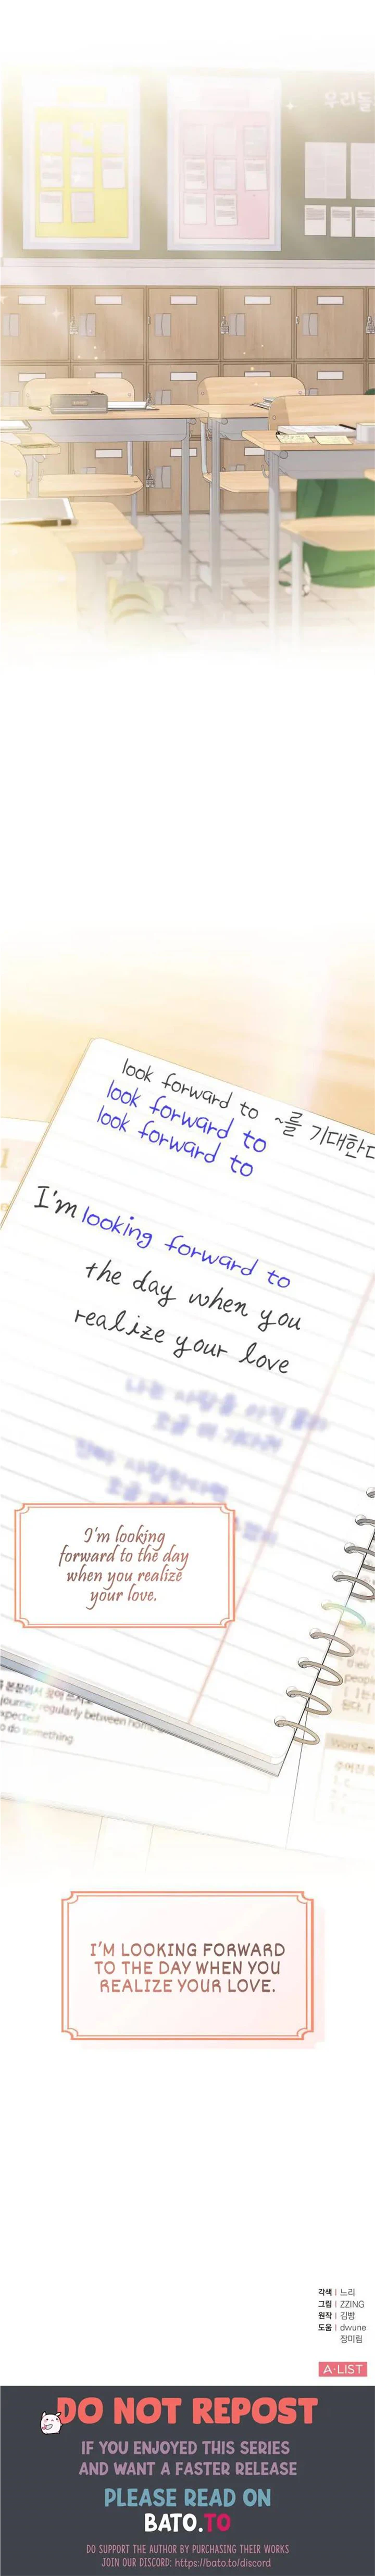 우리들
look forward to ~를 기대한다
look forward to
look forward to
I'm looking forward to
the day when you
realize your love
나는 사랑을 아직 몰라
조금 더 기다려
I'm looking
forward to the day
when you realize
your love.
본문에서 찾아
journey regularly between home
xpected
o do something
I'M LOOKING FORWARD
TO THE DAY WHEN YOU
REALIZE YOUR LOVE.
각색 | 느리
그림 | ZZING
원작 | 김빵
도움 | dwune
장미림
A-LIST
DO NOT REPOST
IF YOU ENJOYED THIS SERIES
AND WANT A FASTER RELEASE
PLEASE READ ON
BATO.TO
DO SUPPORT THE AUTHOR BY PURCHASING THEIR WORKS
JOIN OUR DISCORD: https://bato.to/discord